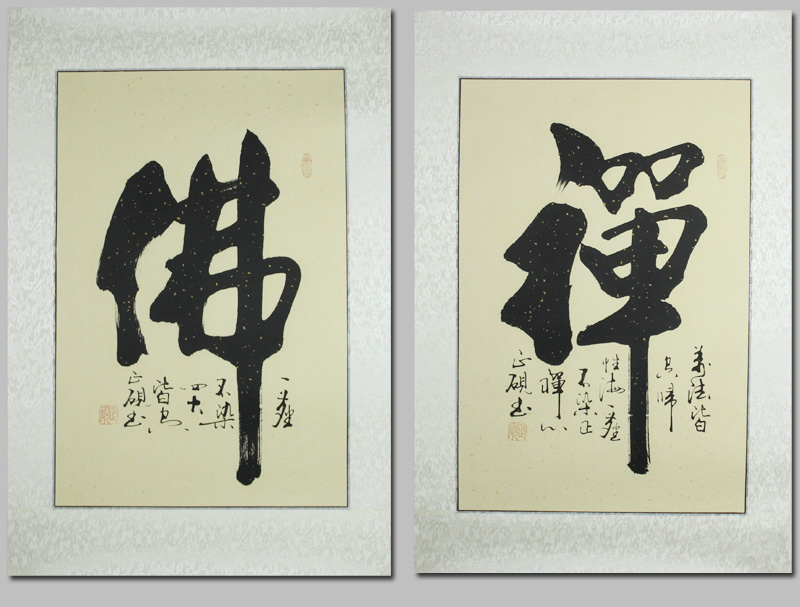 佛
一塵
不染
四大
皆空
正硯書
禪
萬法皆
空歸
性海一塵
不染
禪心
正硯書